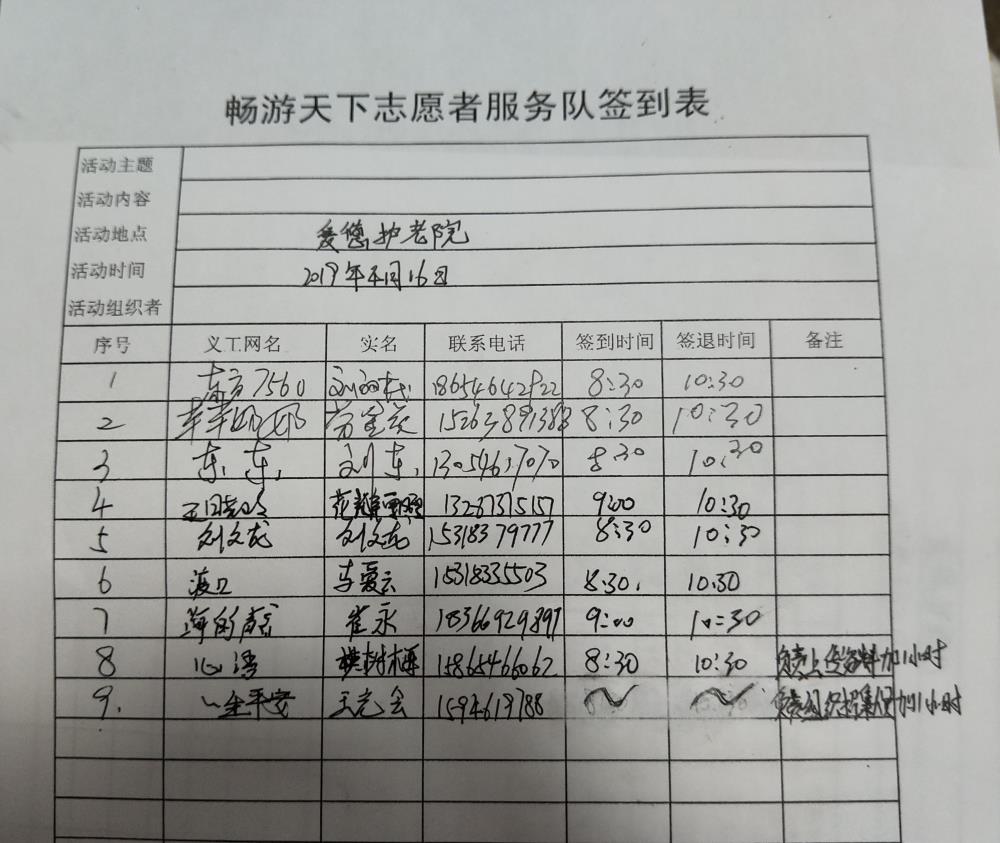 畅游天下志愿者服务队签到表
活动主题
活动内容
活动地点 爱您护老院
活动时间 2019年五月16日
活动组织者
序号 义工网名 实名 联系电话 签到时间 签退时间 备注
1 东方7560 8:30 10:30
2 8:30 10:30
3 东东 刘东 8:30 10:30
4 13287315157 9:00 10:30
5 刘文龙 刘文龙 15318379777 8:30 10:30
6 渡口 李爱云 15318335503 8:30 10:30
7 崔永 18366929897 9:00 10:30
8 心湾 15865466062 8:30 10:30 负责上传资料加1小时
9. 一生平安 王光会 加1小时